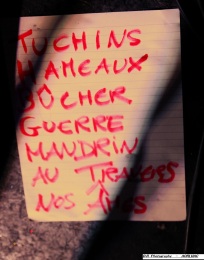 TUCHINS
HAMEAUX
BÛCHER
GUERRE
MANDRIN
AU TRAVERS
NOS ÂMES